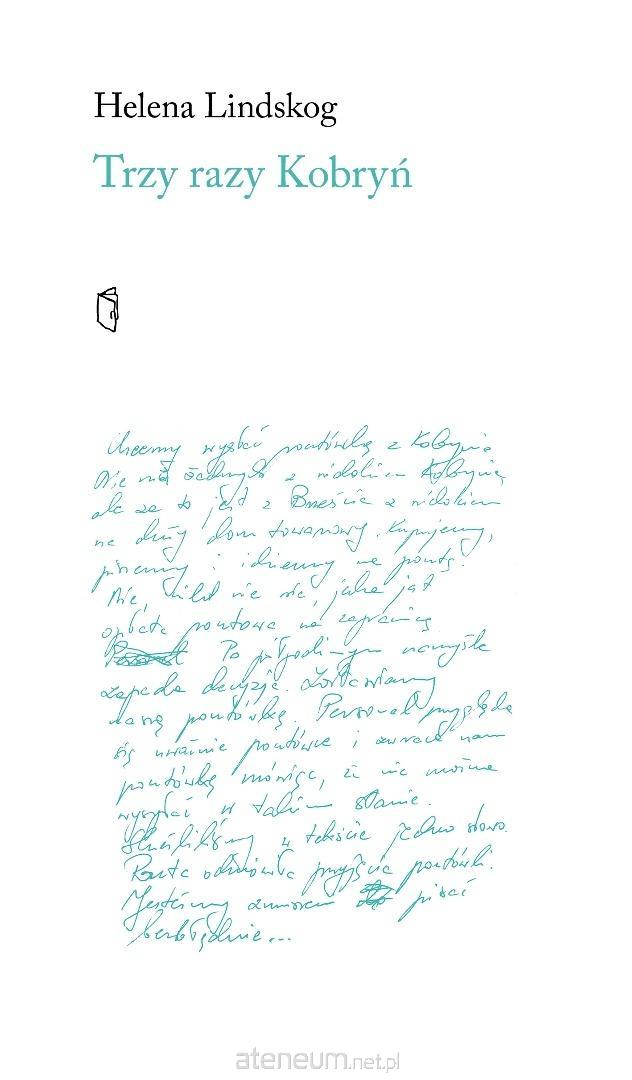 Helena Lindskog
Trzy razy Kobryń
Chcemy wysłać pocztówkę z Kobrynia
Nie ma żadnych z widokiem Kobrynia,
ale za to jest z Brześcia z widokiem
na duży dom towarowy. Kupujemy,
piszemy i idziemy na pocztę.
Nie, nikt nie wie, jaka jest
opłata pocztowa na zagranicę
Po półgodzinnym namyśle
zapada decyzja. Zostawiamy
naszą pocztówkę. Personel przygląda
się uważnie pocztówce i zwraca nam
pocztówkę mówiąc, że nie można
wysyłać w takim stanie.
Skreśliliśmy w tekście jedno słowo.
Poczta odmówiła przyjęcia pocztówki.
Jesteśmy zmuszeni pisać
bezbłędnie...
ateneum.net.pl